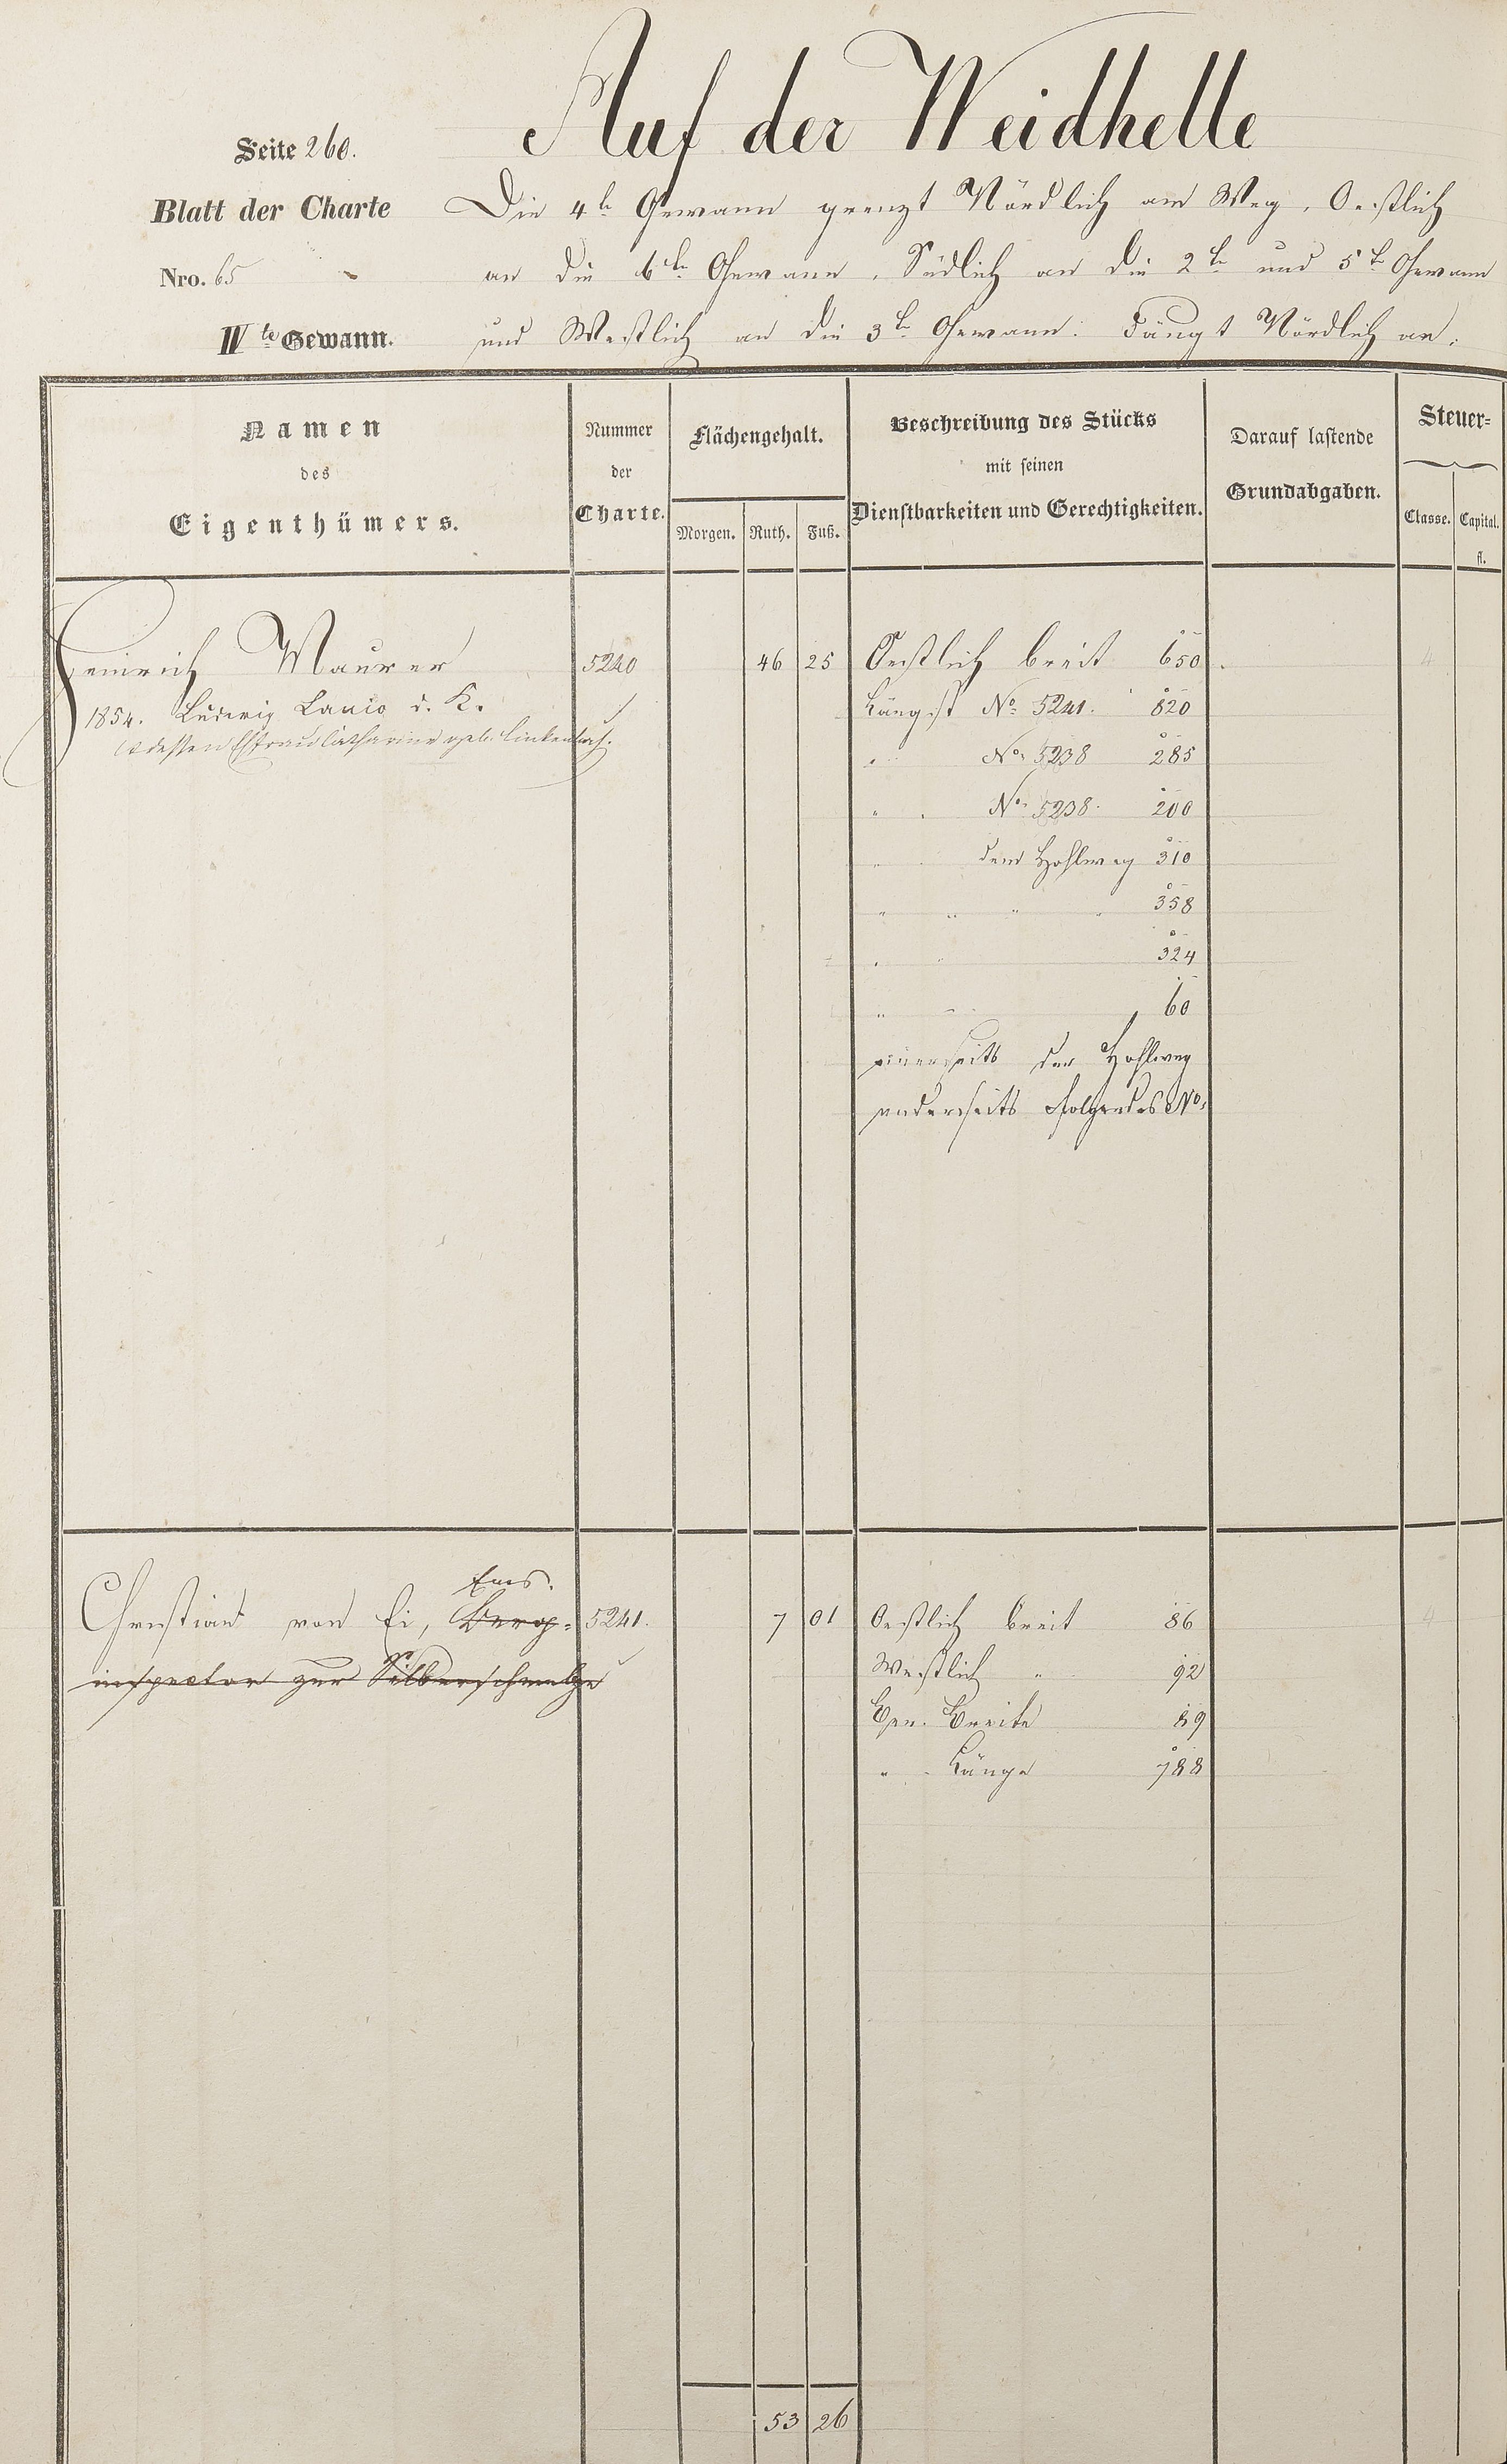 Auf der Weidhelle
Seite 260.
Blatt der Charte
Nro. 65
IV te Gewann.
Die 4te Gewann grenzt Nördlich am Weg, Oestlich
an die 6te Gewann, Südlich an die 2te und 5te Gewann
und Westlich an die 3te Gewann. Fängt Nördlich an.
Namen
des
Eigenthümers.
Nummer
der
Charte.
Flächengehalt.
Morgen. Ruth. Fuß.
Beschreibung des Stücks
mit seinen
Dienstbarkeiten und Gerechtigkeiten.
Darauf lastende
Grundabgaben.
Steuer=
Classe. Capital.
fl.
Heinrich Maurer 5240 46 25 Oestlich breit 650 4
1854. Ludwig Lanio d. K. Längst No. 5241. 820
u dessen Ehefrau Catharine geb. Linkenbach.
" No. 5238 285
" " No. 5238. 200
" " dem Hohlweg 310
" " " " 358
" " 324
" " 60
einerseits der Hohlweg
anderseits folgendes No.
Ems.
Christian von Ei, Berg= 5241. 7 01 Oestlich breit 86 4
inspector zur Silberschmelze Westlich " 92
Gen. Breite 89
" " Länge 788
53 26